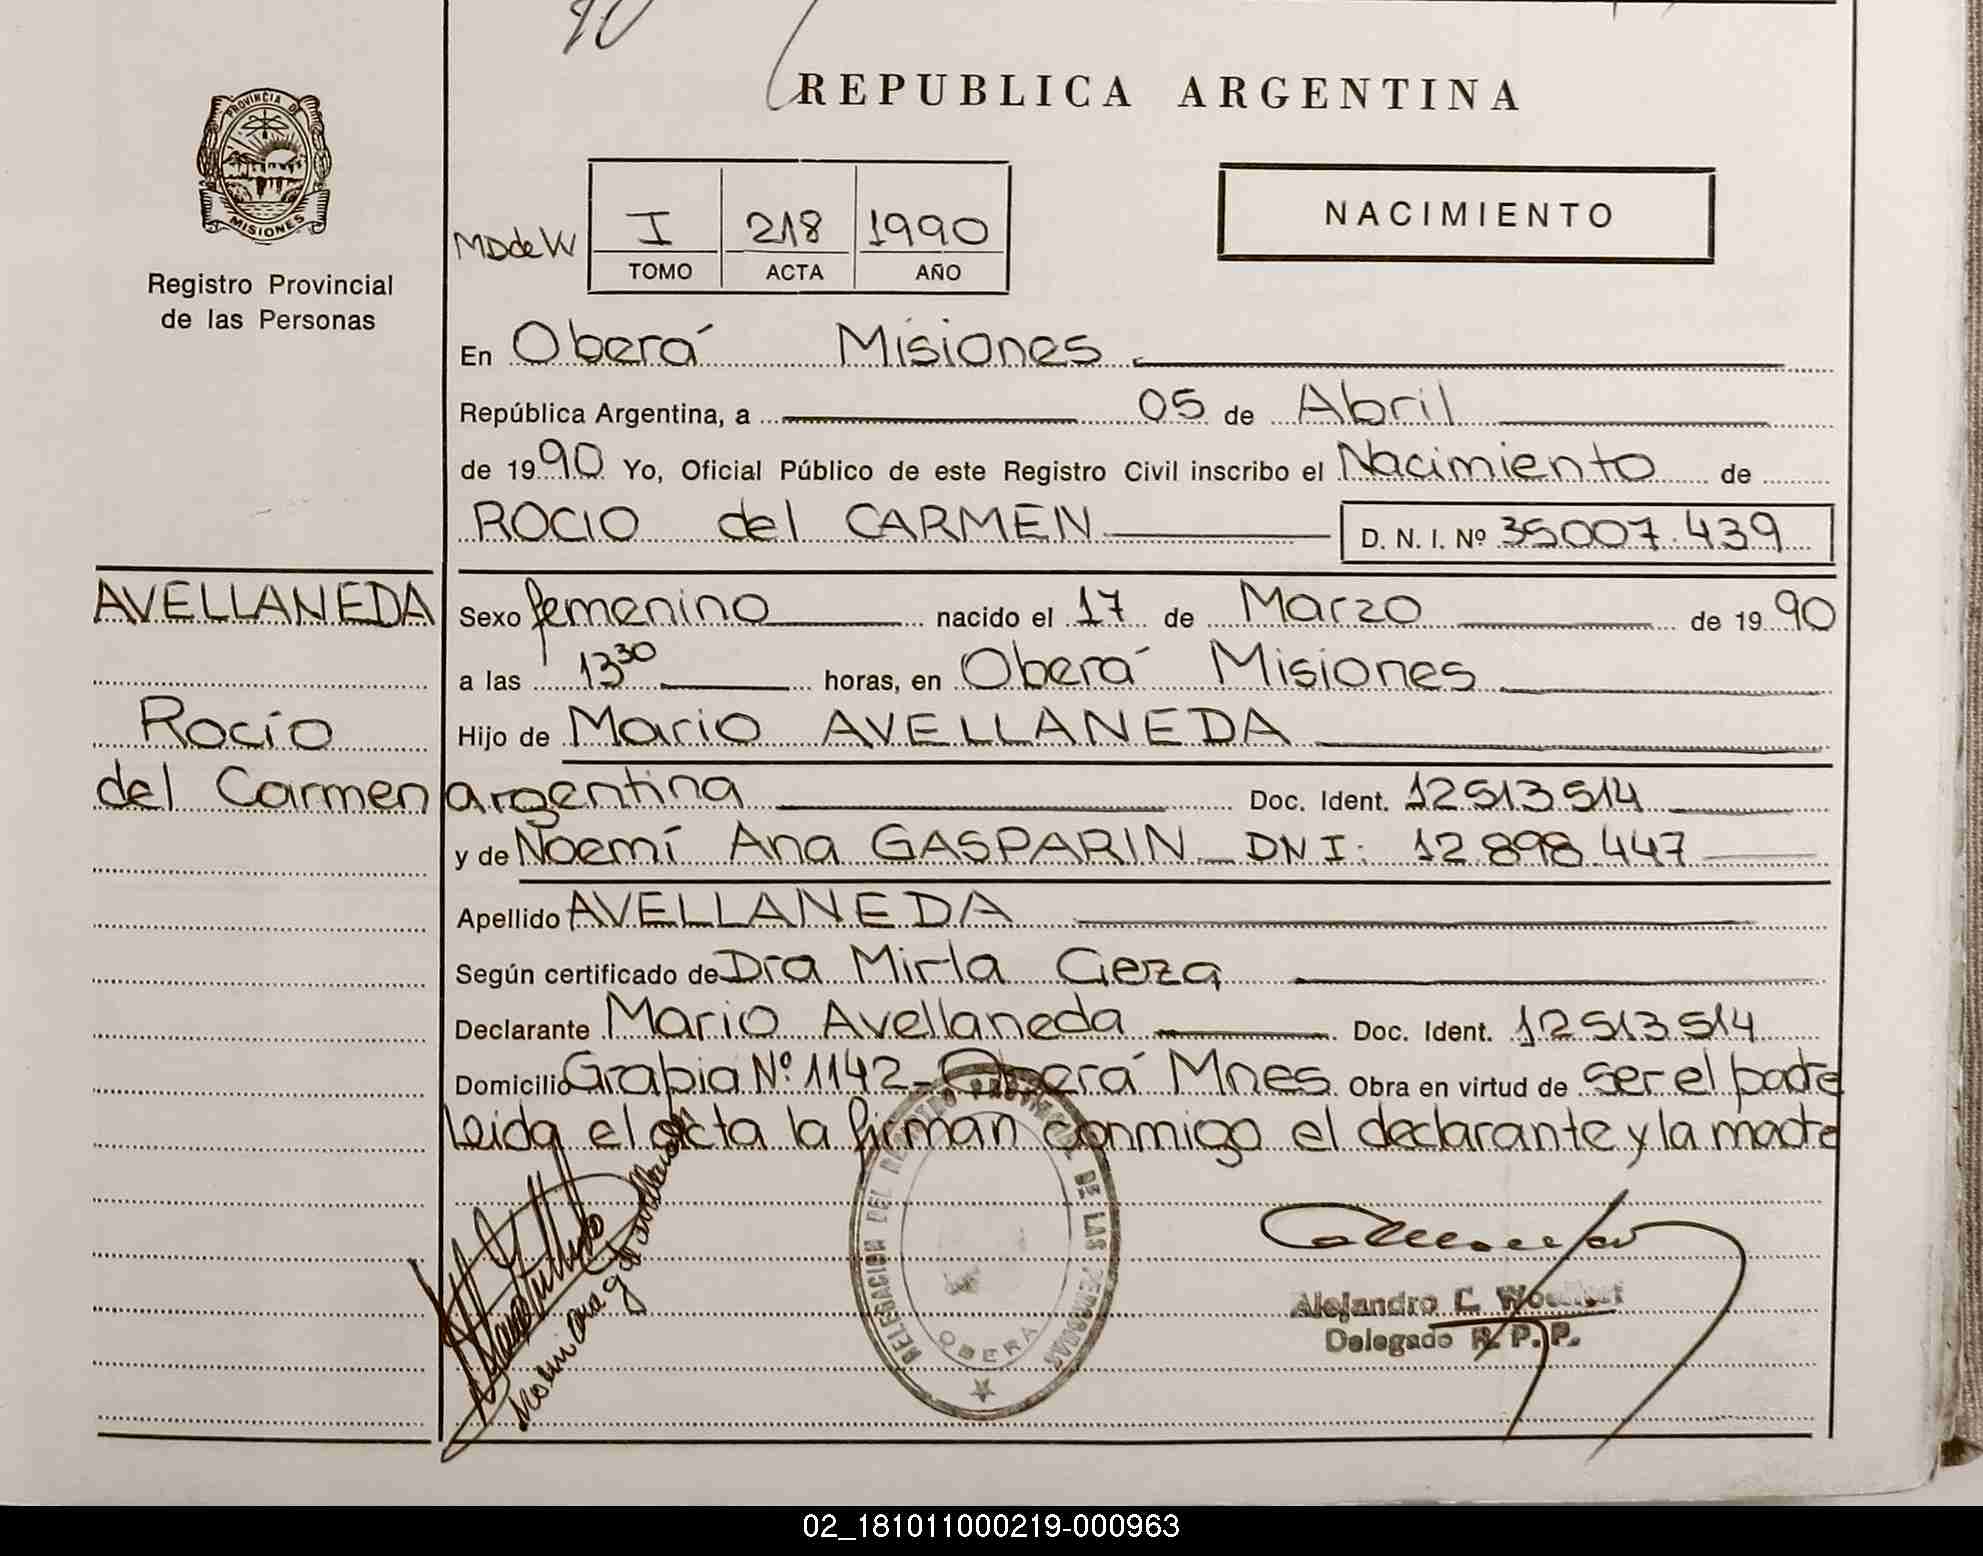 REPUBLICA ARGENTINA
PROVINCIA DE MISIONES
Registro Provincial
de las Personas
MD de W
I 218 1990
TOMO ACTA AÑO
NACIMIENTO
En Oberá Misiones
República Argentina, a 05 de Abril
de 1990 Yo, Oficial Público de este Registro Civil inscribo el Nacimiento de
ROCIO del CARMEN D. N. I. Nº 35007.439
AVELLANEDA
Rocío
del Carmen
Sexo femenino nacido el 17 de Marzo de 1990
a las 13 30 horas, en Oberá Misiones
Hijo de Mario AVELLANEDA
argentina Doc. Ident. 12513514
y de Noemí Ana GASPARIN DNI: 12.898.447
Apellido AVELLANEDA
Según certificado de Dra Mirla Geza
Declarante Mario Avellaneda Doc. Ident. 12513514
Domicilio Grabia Nº 1142- Oberá Mnes. Obra en virtud de ser el padre
leida el acta la firman conmigo el declarante y la madre
DELEGACION DEL REGISTRO PROVINCIAL DE LAS PERSONAS
OBERA
Alejandro C.
Delegado R. P. P.
02_181011000219-000963